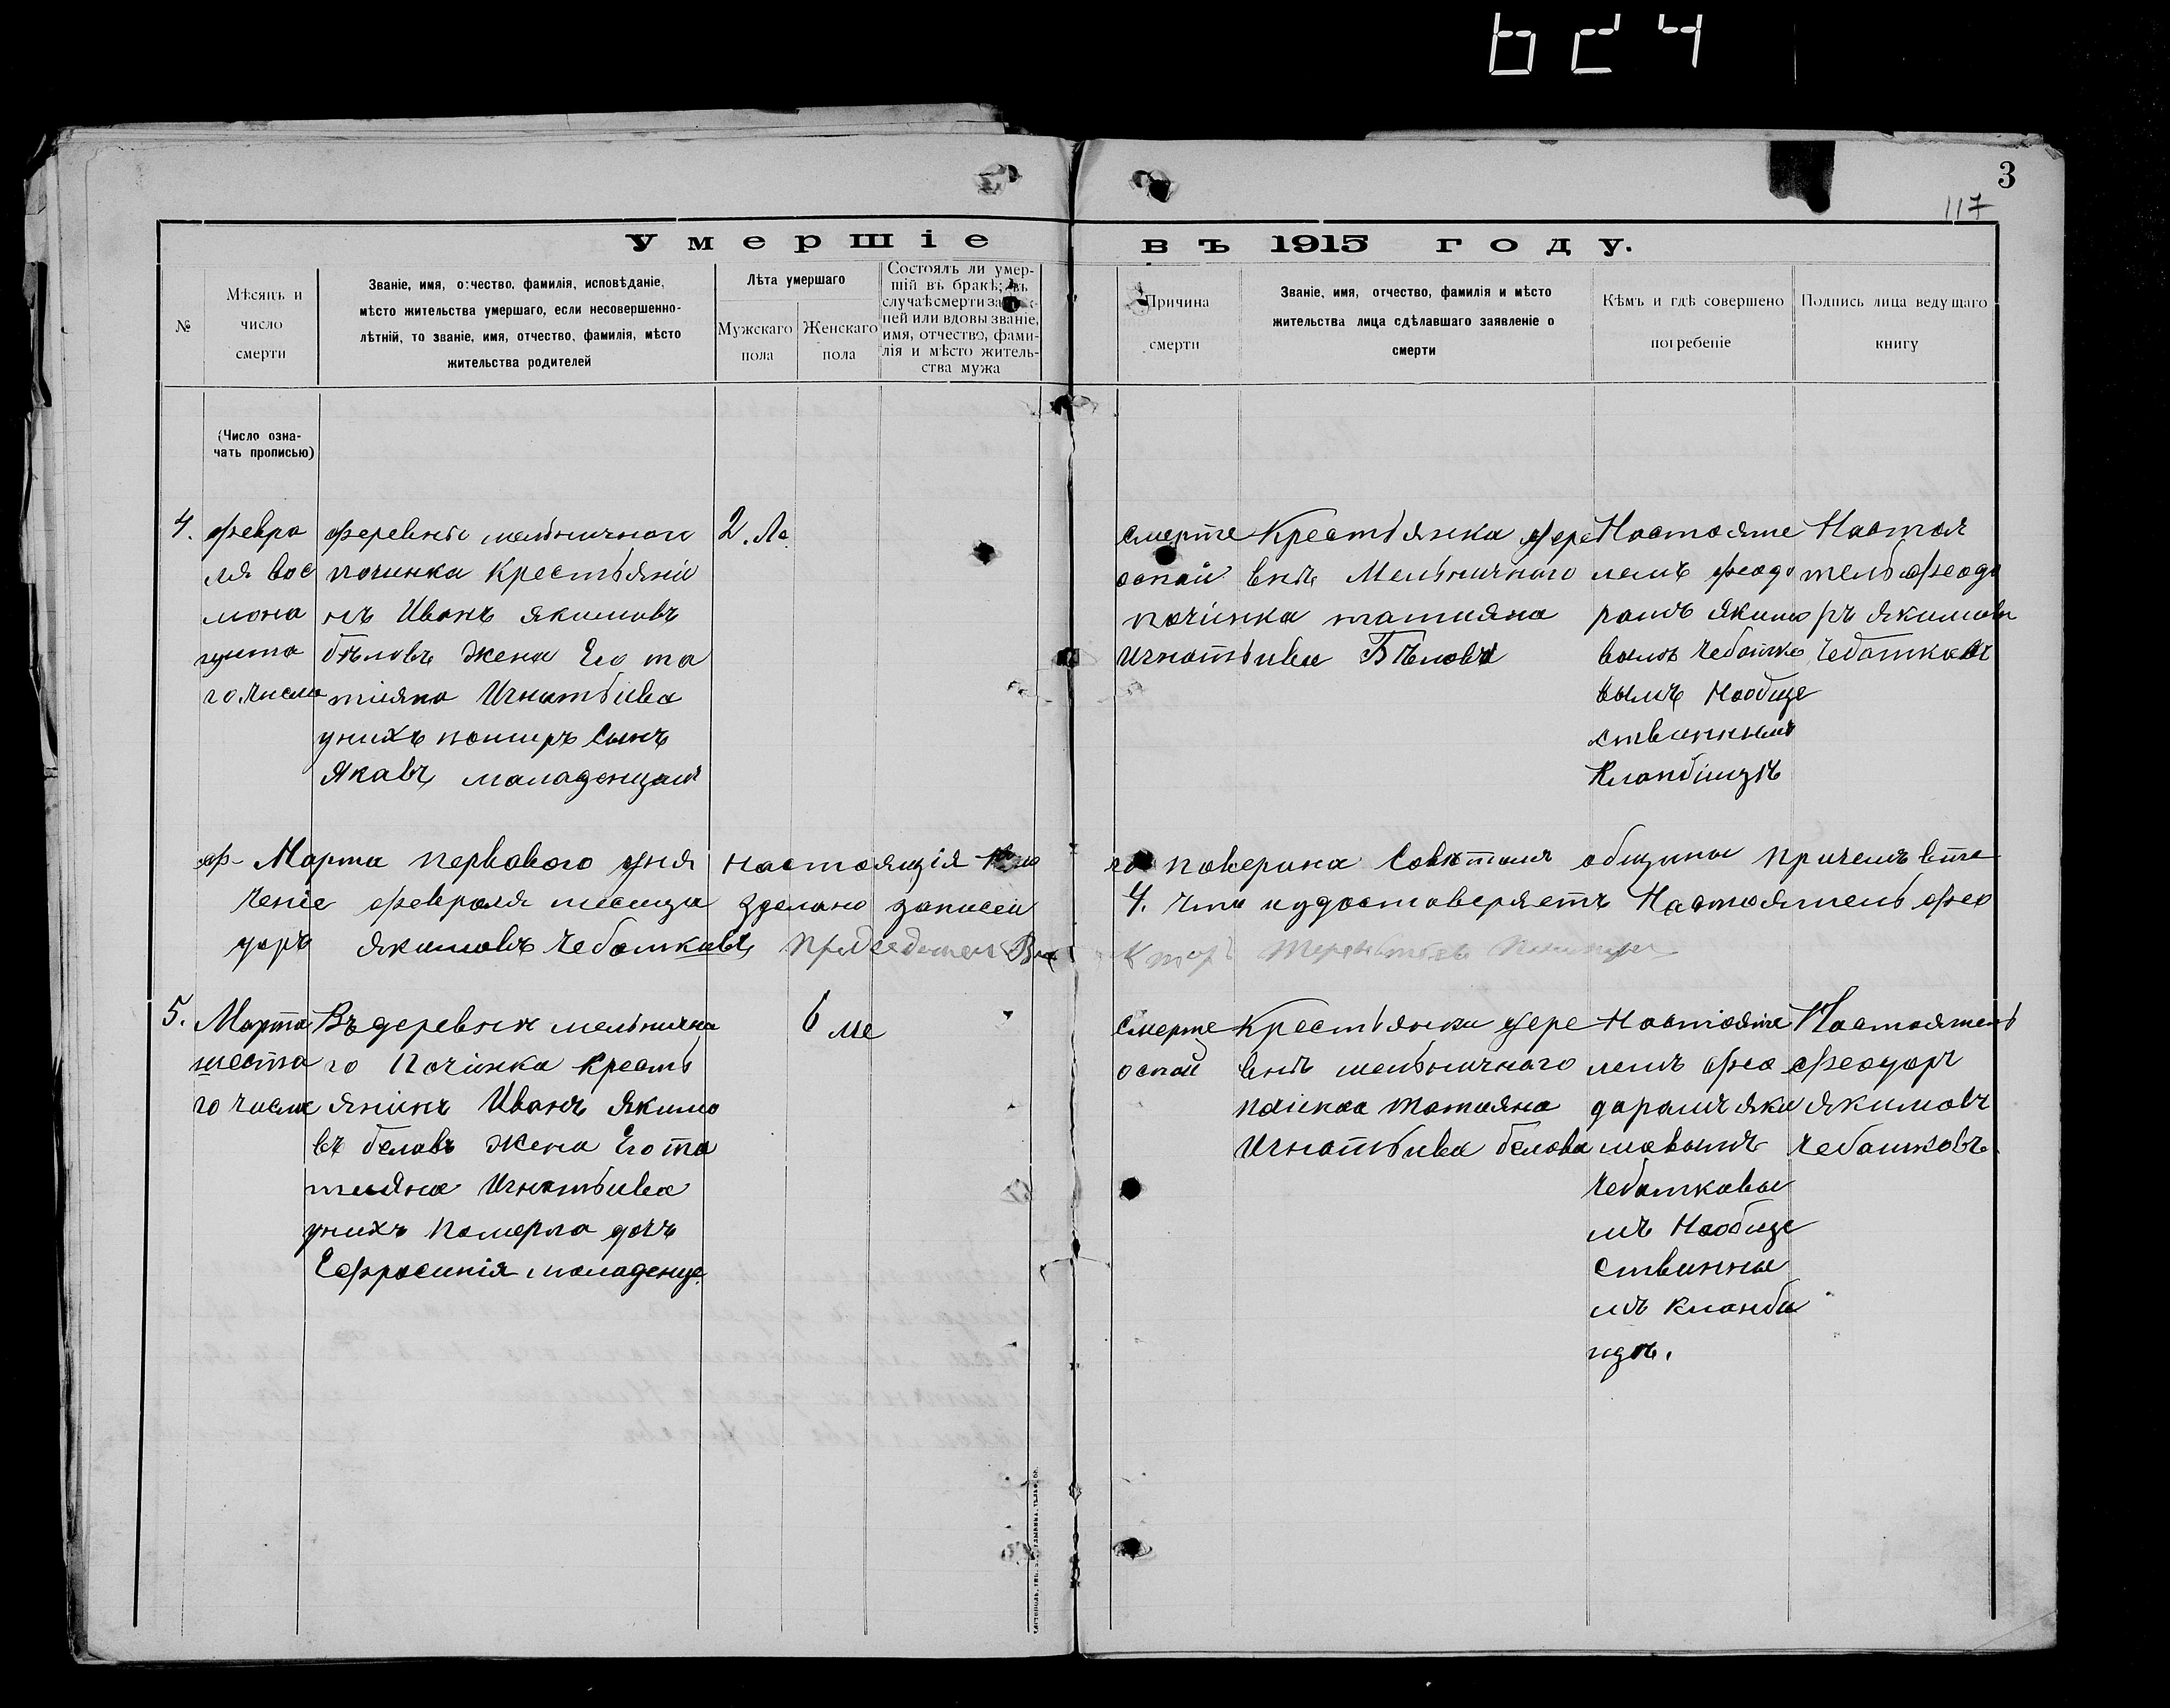 624
3
117
Умершіе въ 1915 году.
№
Мѣсяцъ и
число
смерти
Званіе, имя, отчество, фамилія, исповѣданіе,
мѣсто жительства умершаго, если несовершенно-
лѣтній, то званіе, имя, отчество, фамилія, мѣсто
жительства родителей
Лѣта умершаго
Мужскаго
пола
Женскаго
пола
Состоялъ ли умер-
шій въ бракѣ; въ
случаѣ смерти
ней или вдовы званіе,
имя, отчество, фами-
лія и мѣсто житель-
ства мужа
Причина
смерти
Званіе, имя, отчество, фамилія и мѣсто
жительства лица сдѣлавшаго заявленіе о
смерти
Кѣмъ и гдѣ совершено
погребеніе
Подпись лица ведущаго
книгу
(Число озна-
чать прописью)
4.
Февра
ля вос
мона
цата
го. числа
Деревни мельничнаго
починка Крестьяни
нъ Иванъ Якимовъ
бѣловъ Жена Его та
тияна Игнатьива
унихъ помиръ Сынъ
Якавъ маладенцам
2. Ле.
Смерте
оспай
Крестьянка Дере
внѣ Мельничнаго
почінка татияна
Игнатьива Бѣлова
Настояте
лемъ Феадо
рамъ Якимо
вымъ Чебатко
вымъ Наобще
ствинным
Кладбіщѣ
Настоя
тель Феадо
ръ Якимовъ
Чебатковъ
Марта Перваваго дня настоящія
ченіе Февраля месеца зделано записей
доръ Якимовъ Чебатковъ Председатель
поверина Саветамъ общины Причемъ вте
4. Что и удостоверяетъ Настоятель Фео
5.
Марта
шеста
го числа
Въ деревни мельнична
го Почінка Кресть
янінъ Иванъ Якимо
въ белавъ Жена Его та
тияна Игнатьива
унихъ Памерла дочъ
Ефросинія маладенце.
6 ме
Смерте
оспай
Крестьянка Дере
внѣ мельничнаго
Татияна
Игнатьива белова
Настояте
лемъ Фео
дарамъ Яки
мавымъ
Чебаткавы
мъ Наобще
ствинны
мъ Кладби
щѣ.
Настоятель
Феодоръ
Якимовъ
Чебатковъ.